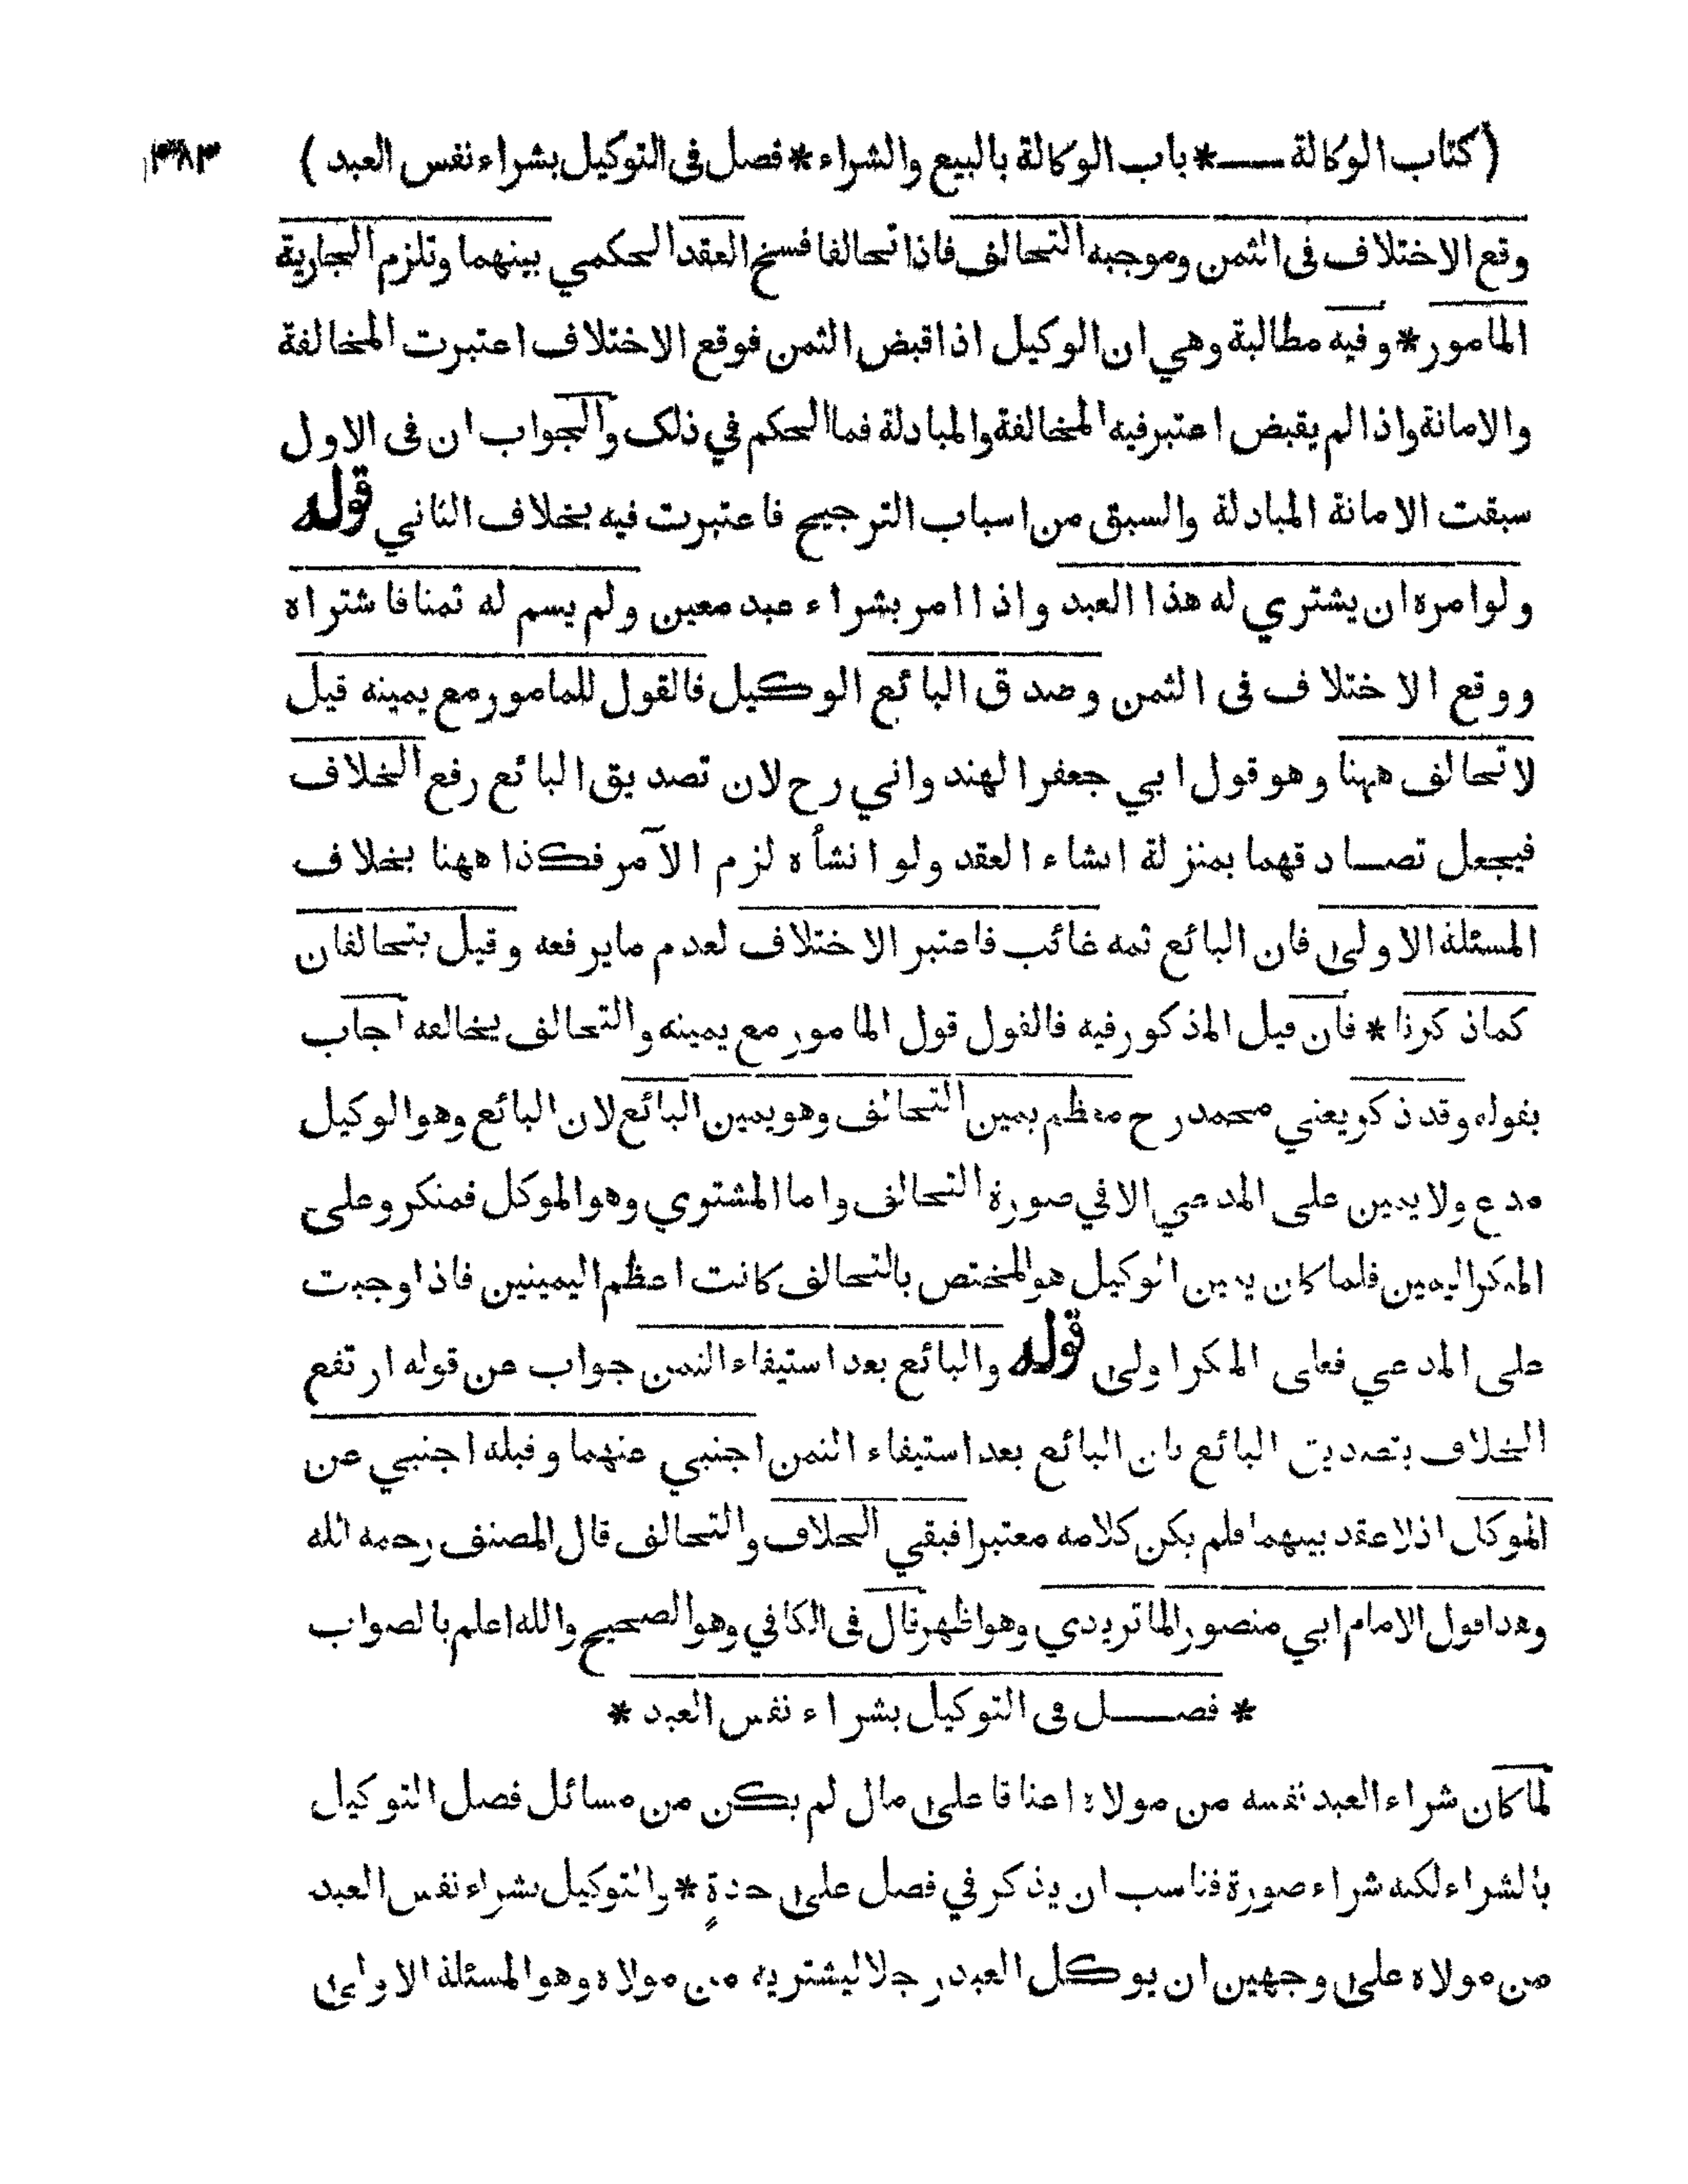 ( كتاب الوكالة ـــ * باب الوكالة بالبيع والشراء * فصل فى التوكيل بشراء نفس العبد ) ٣٨٣
وقع الاختلاف فى الثمن وموجبه التحالف فاذا تحالفا فسخ العقد الحكمي بينهما وتلزم الجارية
المامور * وفيه مطالبة وهي ان الوكيل اذا قبض الثمن فوقع الاختلاف اعتبرت المخالفة
والامانة واذا لم يقبض اعتبر فيه المخالفة والمبادلة فما الحكم في ذلك والجواب ان فى الاول
سبقت الامانة المبادلة والسبق من اسباب الترجيح فاعتبرت فيه بخلاف الثاني قوله
ولو امره ان يشتري له هذا العبد واذا امر بشراء عبد معين ولم يسم له ثمنا فاشتراه
ووقع الاختلاف فى الثمن وصدق البائع الوكيل فالقول للمامور مع يمينه قيل
لا تحالف ههنا وهو قول ابي جعفر الهندواني رح لان تصديق البائع رفع الخلاف
فيجعل تصادقهما بمنزلة انشاء العقد ولو انشأه لزم الآمر فكذا ههنا بخلاف
المسئلة الاولى فان البائع ثمه غائب فاعتبر الاختلاف لعدم مايرفعه وقيل يتحالفان
كماذكرنا * فان قيل المذكور فيه فالقول قول المامور مع يمينه والتحالف يخالفه اجاب
بقوله وقد ذكر يعني محمد رح معظم يمين التحالف وهو يمين البائع لان البائع وهو الوكيل
مدع ولا يمين على المدعي الا في صورة التحالف واما المشتري وهو الموكل فمنكر وعلى
المنكر اليمين فلما كان يمين الوكيل هو المختص بالتحالف كانت اعظم اليمينين فاذا وجبت
على المدعي فعلى المنكر اولى قوله والبائع بعد استيفاء الثمن جواب عن قوله ارتفع
الخلاف بتصديق البائع بان البائع بعد استيفاء الثمن اجنبي عنهما وقبله اجنبي عن
الموكل اذ لا عقد بينهما فلم يكن كلامه معتبرا فبقي الخلاف والتحالف قال المصنف رحمه الله
وهذا قول الامام ابي منصور الماتريدي وهو اظهر قال فى الكافي وهو الصحيح والله اعلم بالصواب
* فصـــل فى التوكيل بشراء نفس العبد *
لما كان شراء العبد نفسه من مولاه اعتاقا على مال لم يكن من مسائل فصل التوكيل
بالشراء لكنه شراء صورة فناسب ان يذكر في فصل على حدةٍ * والتوكيل بشراء نفس العبد
من مولاه على وجهين ان يوكل العبد رجلا ليشتريه من مولاه وهو المسئلة الاولى